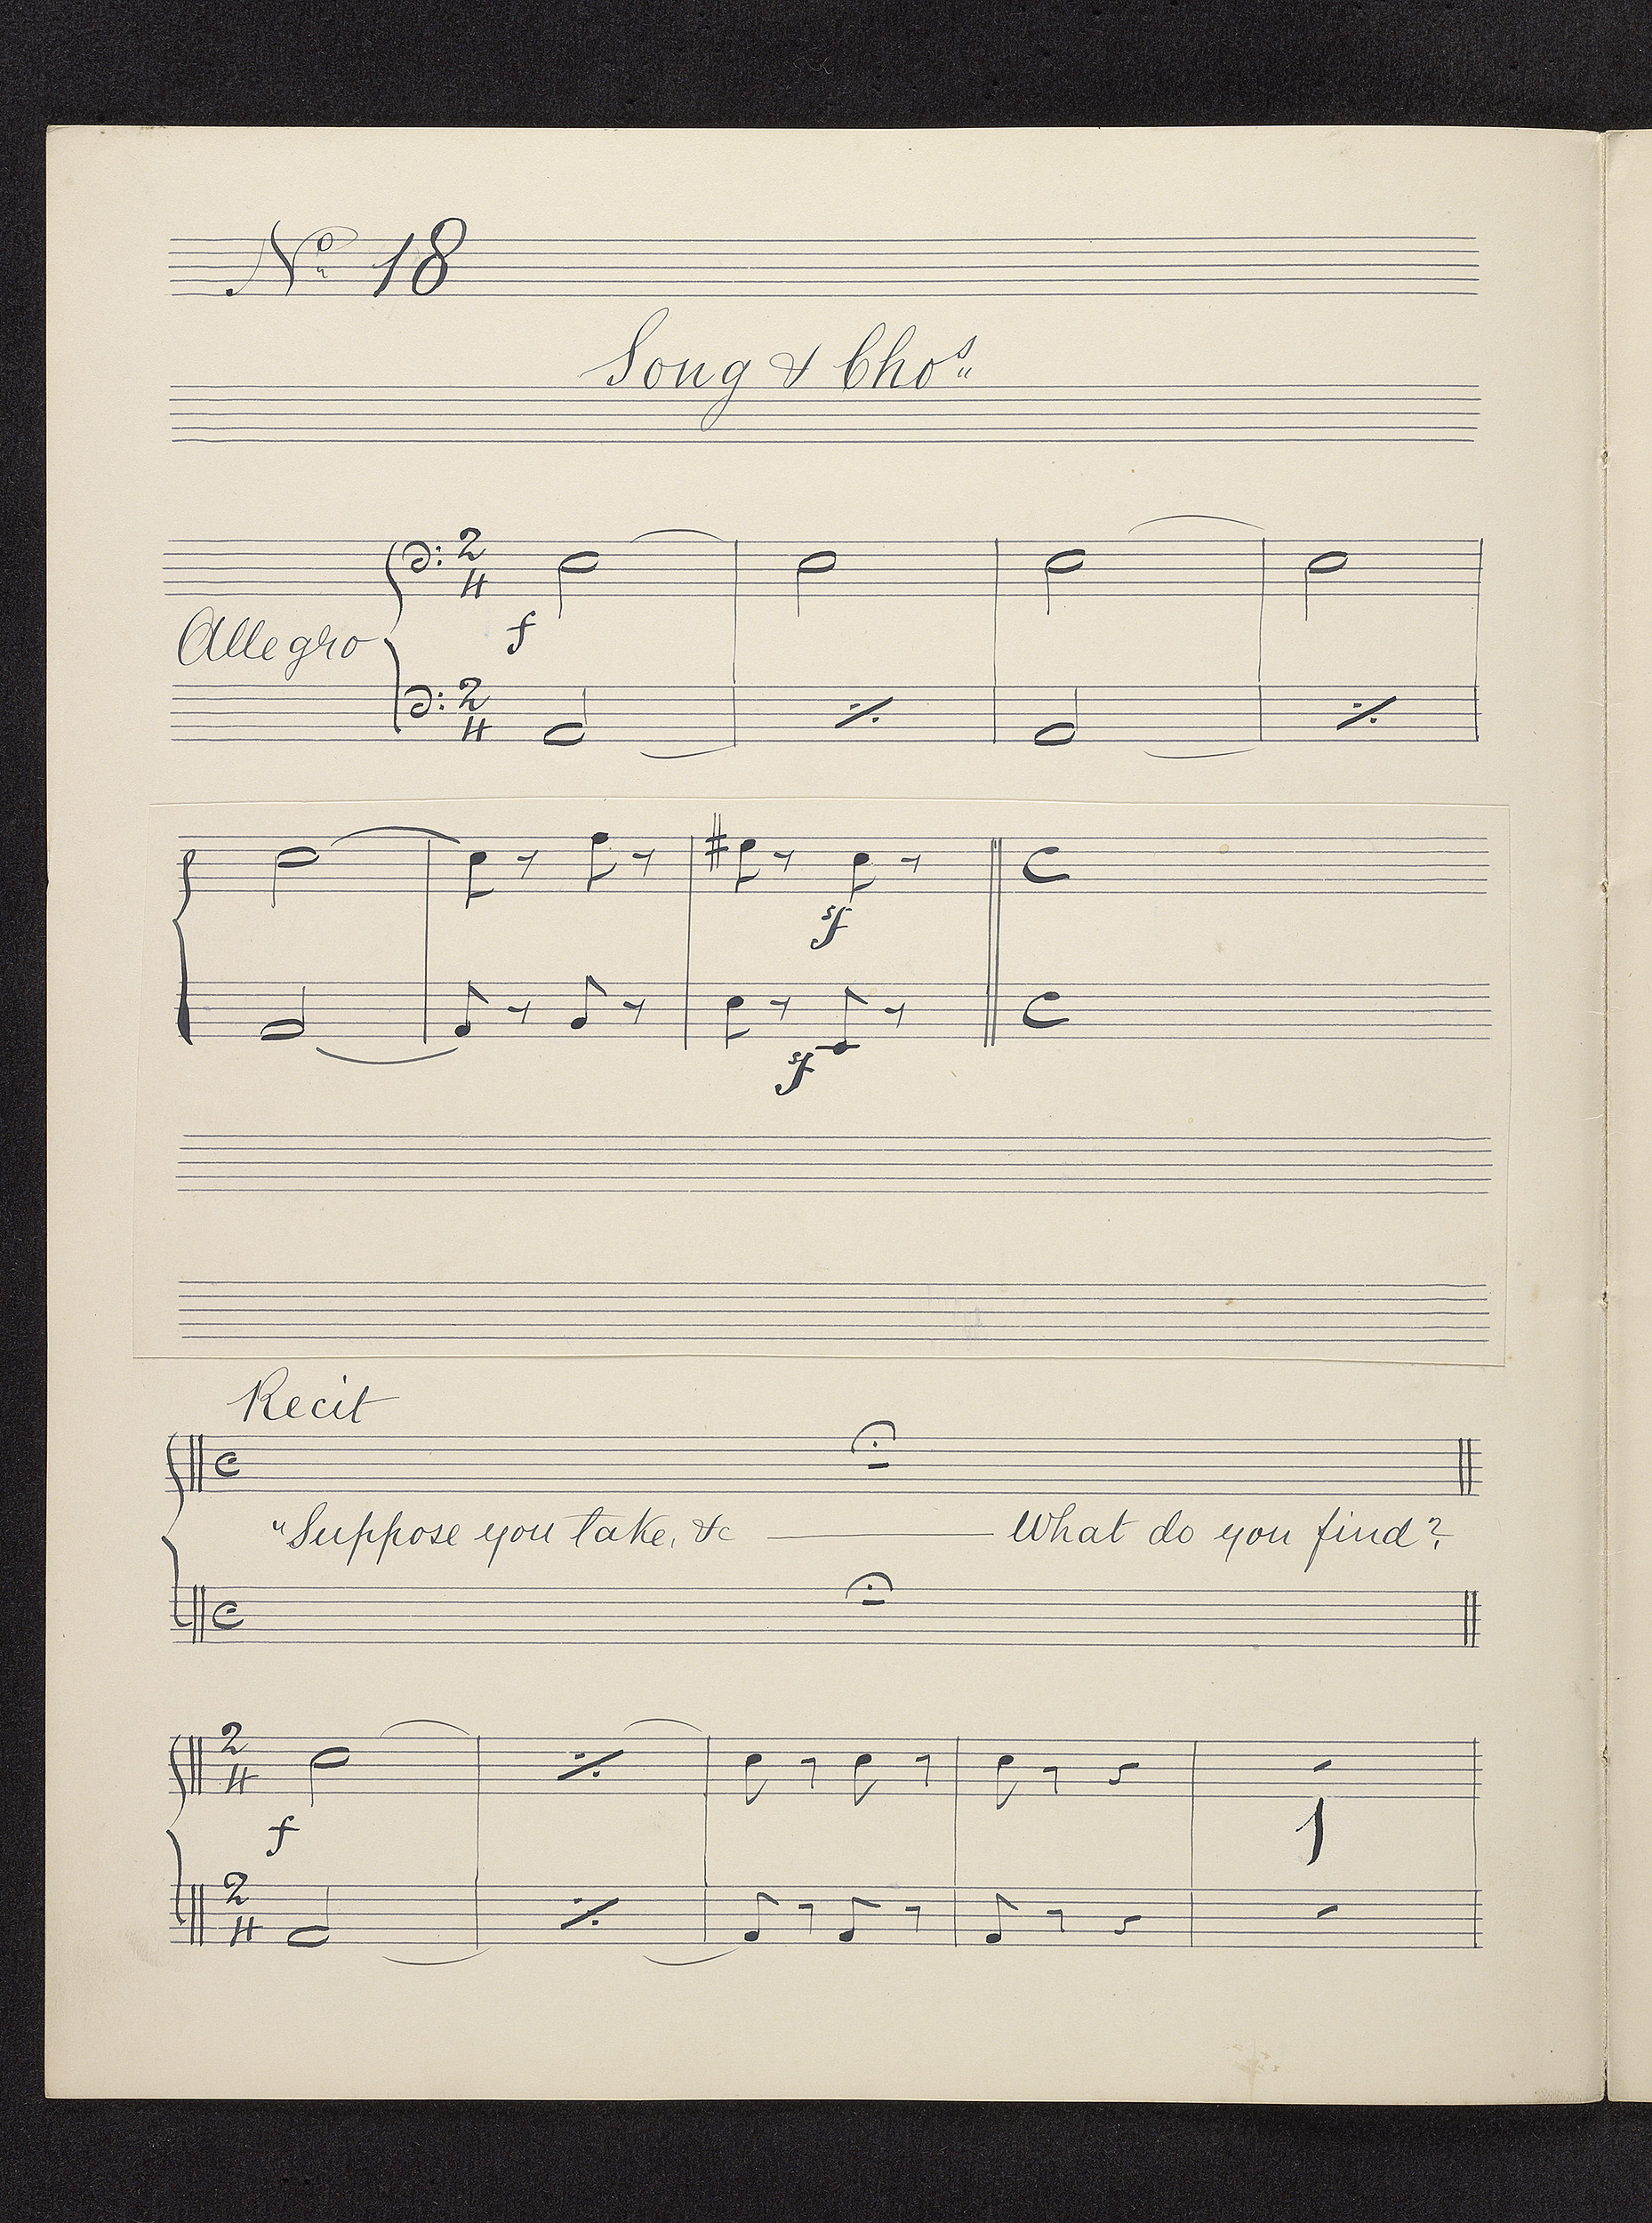 No 18
Song & Chos
Allegro
2/4
f
2/4
sf
C
sf
C
Recit
C
"Suppose you take, &c ——— What do you find?
C
2/4
f
1
2/4